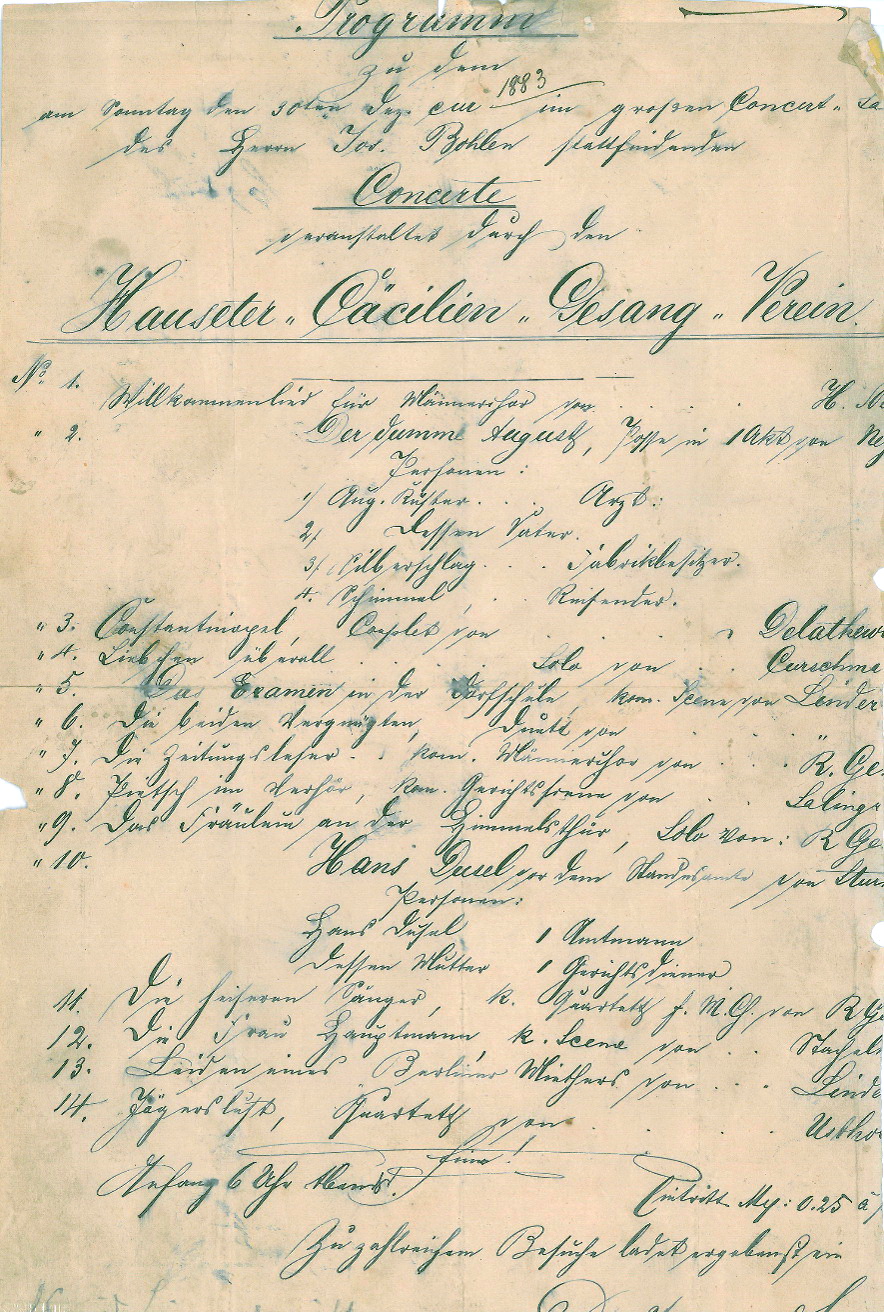 Programm
zu dem
1883
am Sonntag den 30ten Dez. cur im großen Concert-Sa
des Herrn Jos. Bohlen stattfindenden
Concerte
veranstaltet durch den
Hauseter "Cäcilien" Gesang "Verein.
No. 1. Willkommenlied für Männerchor von . . . H.
" 2. Der dumme August, Posse in 1 Akt von
Personen:
1) Aug. Küster . . . Arzt.
2) Dessen Vater.
3) Silberschlag . . . Fabrikbesitzer.
4. Schimmel, . . Reisender.
" 3. Constantinopel, Couplet von . . . Delatheur
" 4. Liebchen überall . . . . Solo von . . Curschma
" 5. Das Examen in der Dorfschule, kom. Scene von Linder
" 6. Die beiden Vergnügten, Duett von . . "
" 7. Die Zeitungsleser . . kom. Männerchor von . . . R. Ge
" 8. Pietsch im Verhör, kom. Gerichtsscene von . . Salingr
" 9. Das Fräulein an der Himmelsthür, Solo von: R Ge
" 10. Hans Dusel vor dem Standesamte von
Personen:
Hans Dusel 1 Amtmann
Dessen Mutter 1 Gerichtsdiener
11. Die heiseren Sänger, k. Quartett f. M.G. von R Ge
12. Die Frau Hauptmann k. Scene von . . Stachel
13. Leiden eines Berliner Miethers von . . . Linde
14. Jägerslust, Quartett von . . .
Fine!
Anfang 6 Uhr Abends. Eintritt Mg: 0.25 à
Zu zahlreichem Besuche ladet ergebenst ein